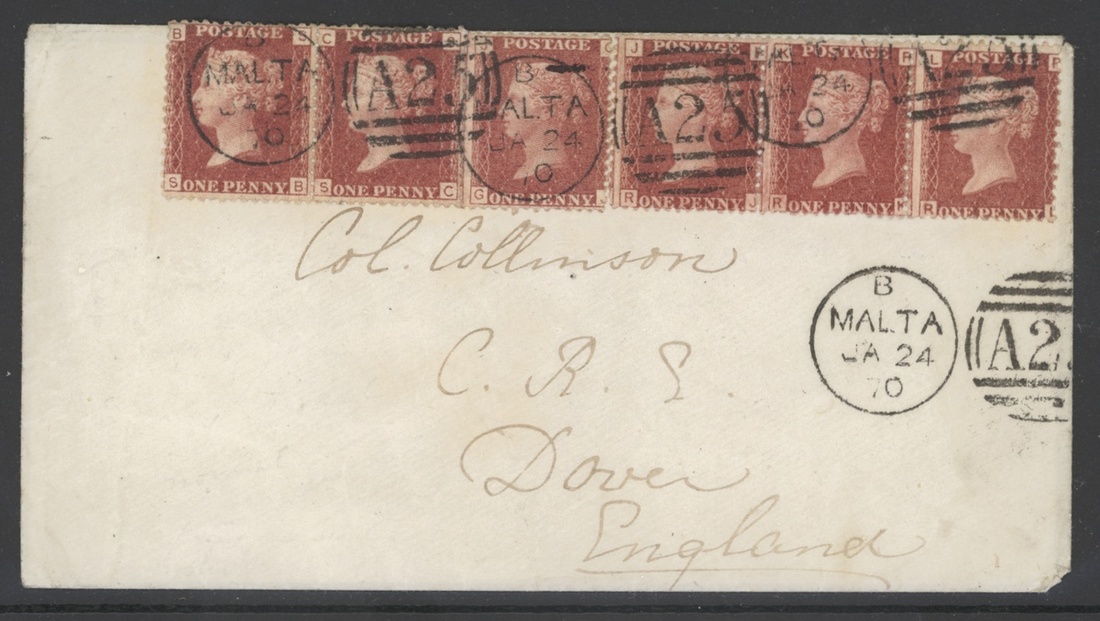 B S C S POSTAGE J K R L R
POSTAGE POSTAGE POSTAGE POSTAGE POSTAGE
B MALTA JA 24 70
A25
B MALTA JA 24 70
A25
JA 24 70
S ONE PENNY B
S ONE PENNY C
G ONE PENNY J
R ONE PENNY J
R ONE PENNY K
R ONE PENNY L
Col. Collinson
B
MALTA
JA 24
70
A2
C. R. E.
Dover
England